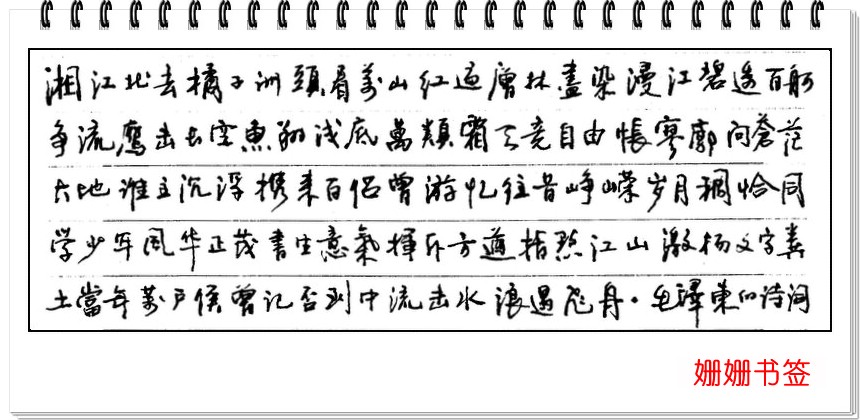 湘江北去橘子洲頭看万山红遍層林盡染漫江碧透百舸
争流鷹击长空魚翔浅底萬類霜天竞自由悵寥廓问蒼茫
大地谁主沉浮携来百侣曾游忆往昔峥嵘岁月稠恰同
学少年風华正茂書生意氣揮斥方遒指点江山激扬文字粪
土當年万户侯曾记否到中流击水浪遏飞舟·毛澤東的诗词
姗姗书签